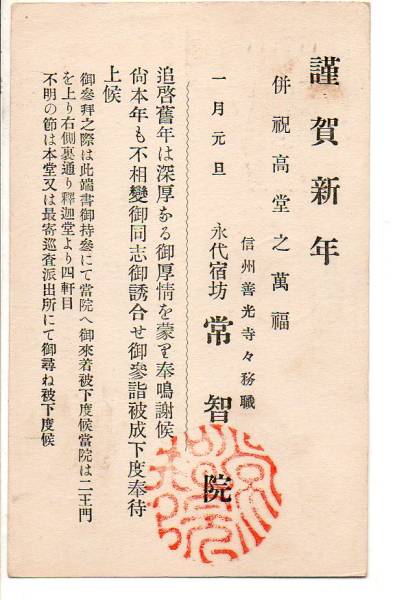 謹賀新年
併祝高堂之萬福
一月元旦
信州善光寺々務職
永代宿坊 常智院
追啓舊年は深厚なる御厚情を蒙り奉鳴謝候
尙本年も不相變御同志御誘合せ御參詣被成下度奉待
上候
御參拜之際は此端書御持參にて當院へ御來着被下度候當院は二王門
を上り右側裏通り釋迦堂より四軒目
不明の節は本堂又は最寄巡査派出所にて御尋ね被下度候
常智院